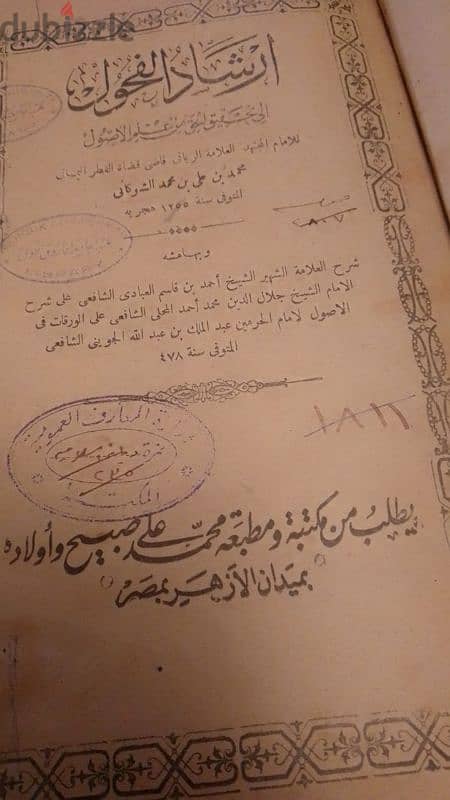 dubizzle
ارشاد الفحول
إلى تحقيق الحق من علم الاصول
للامام المجتهد العلامة الربانى قاضى قضاة القطر اليمانى
محمد بن على بن محمد الشوكانى
المتوفى سنة ١٢٥٥ هجرية
٨٠٧
وبهامشه
شرح العلامة الشهير الشيخ أحمد بن قاسم العبادى الشافعى على شرح
الامام الشيخ جلال الدين محمد أحمد المحلى الشافعى على الورقات فى
الاصول لامام الحرمين عبد الملك بن عبد الله الجوينى الشافعى
المتوفى سنة ٤٧٨
١٨١١
وزارة المعارف العمومية
المكتبة
يطلب من مكتبة ومطبعة محمد على صبيح وأولاده
بميدان الأزهر بمصر